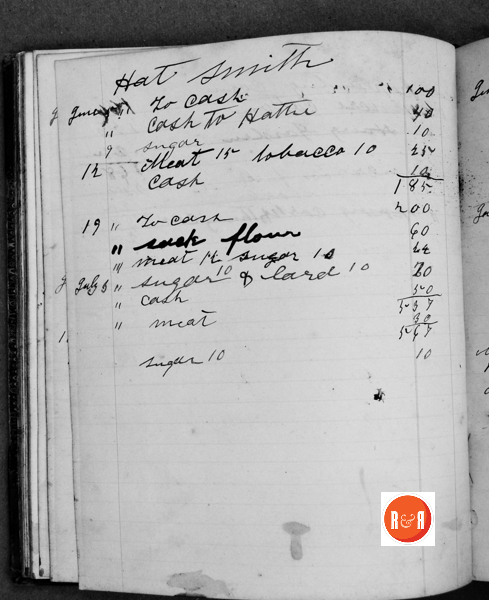 Hat Smith
" To cash " " " 100
" cash to Hattie 40
9 sugar 10
12 Meat 15 tobacco 10 25
cash 10
185
19 " To cash 200
" sack flour 60
" meat 12 sugar 10 22
July 3 " sugar 10 & lard 10 20
" cash 50
537
" meat 30
567
sugar 10 10
R&R